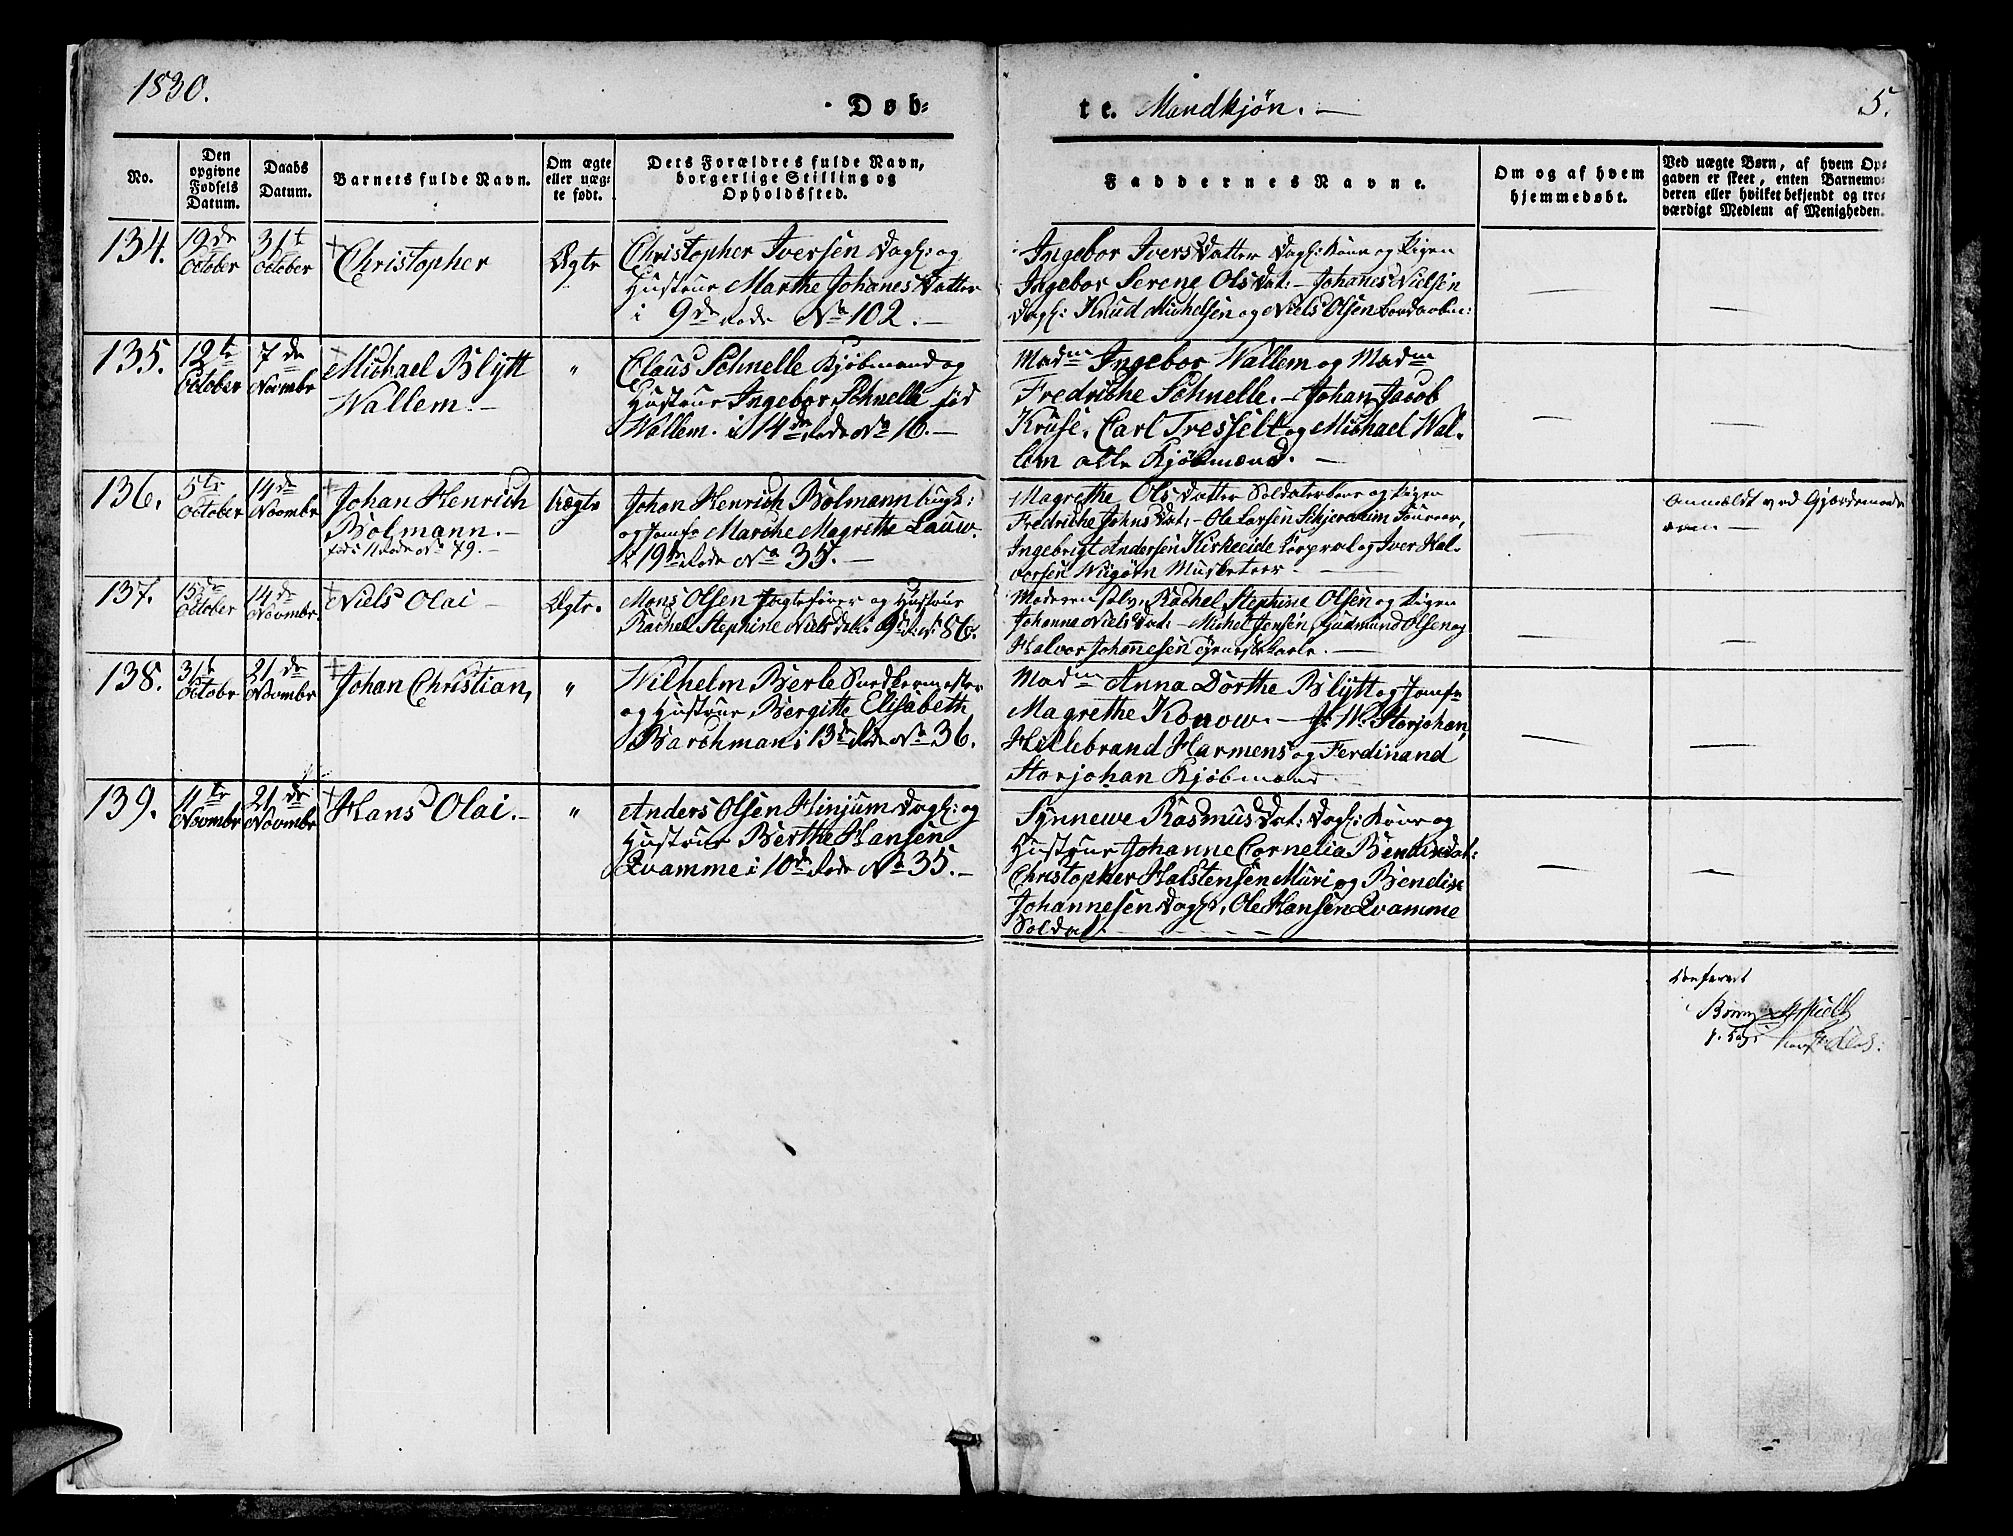 1830.
Døb=
te. Mandkjøn. —
5.
No.
Den opgivne Fødsels Datum.
Daabs Datum.
Barnets fulde Navn.
Om ægte eller uægte født.
Dets Forældres fulde Navn, borgerlige Stilling og Opholdssted.
Faddernes Navne.
Om og af hvem hjemmedøbt.
Ved uægte Børn, af hvem Op=
gaven er skeet, enten Barnemo=
deren eller hvilket bekjendt og tro=
værdigt Medlem af Menigheden.
134. 19de October 31t October Christopher Ægte
Christopher Iversen Dagk: og
Hustrue Marthe Johanes Datter
i 9de Rode No 102. —
Ingebor Ivers Datter Dagk: Kone og Pigen
Ingebor Serene Ols Dat: – Johanes Nielsen
Dagk: Knud Michelsen og Niels Olsen
— —
135. 12te October 7de Novmbr Michael Blÿtt
Wallem. — "
Claus Schnelle Kjøbmand og
Hustrue Ingebor Schnelle fød
Wallem. i 14de Rode No 16. —
Madm Ingebor Wallem og Madm
Fredrikke Schnelle. – Johan Jacob
Kruse, Carl Tresselt og Michael Wal-
lem alle Kjøbmænd. —
— —
136. 5te October 14de Novmbr Johan Henrich
Bolmann. —
fød i 11 Rode No 49. —
Uægte
Johan Henrich Bolmann Ungk:
og Jomfr Marthe Magrethe Lauw.
i 19de Rode No 35. —
Magrethe Ols Datter Soldaterkone og Pigen
Fredrikke Johns Dat: – Ole Larsen
Ingebrigt Andersen Kirkeeide Corporal og Iver Hal-
vorsen Musketeer —
Anmeldt ved Gjordemode
ren —
137. 15de October 14de Novmbr Niels Olai — Ægte.
Mons Olsen og Hustrue
Rachel Stephine Niels Dt: i 9de Rode No 86.
Moderen selv, Rachel Stephine Olsen og Pigen
Johanne Niels Dat: – Michel Jensen, Gudmund Olsen og
Halvor Johannesen Tjenestekarle. —
— —
138. 31te Octobr 21de Novmbr Johan Christian, "
Wilhelm Berle Sadlermester
og Hustrue Bergitte Elisabeth
Barchman i 13de Rode No 36.
Madm Anna Dorthe Blÿtt og Jomfr
Magrethe Konow. – J: W: Storjohan,
Hillebrand Harmens og Ferdinand
Storjohan Kjøbmænd
— —
139. 11te Novmbr 21de Novmbr Hans Olai. — "
Anders Olsen Hinjum Dagk: og
Hustrue Berthe Hansen
Qvamme i 10de Rode No 35. —
Synnewe Rasmus Dat: Dagk: Kone og
Hustrue Johanne Cornelia Bendix Dat:
Christopher Halstensen Muri og Bendix
Johannesen Dagk, Ole Hansen Qvamme
Soldat. —
— —
Confereret